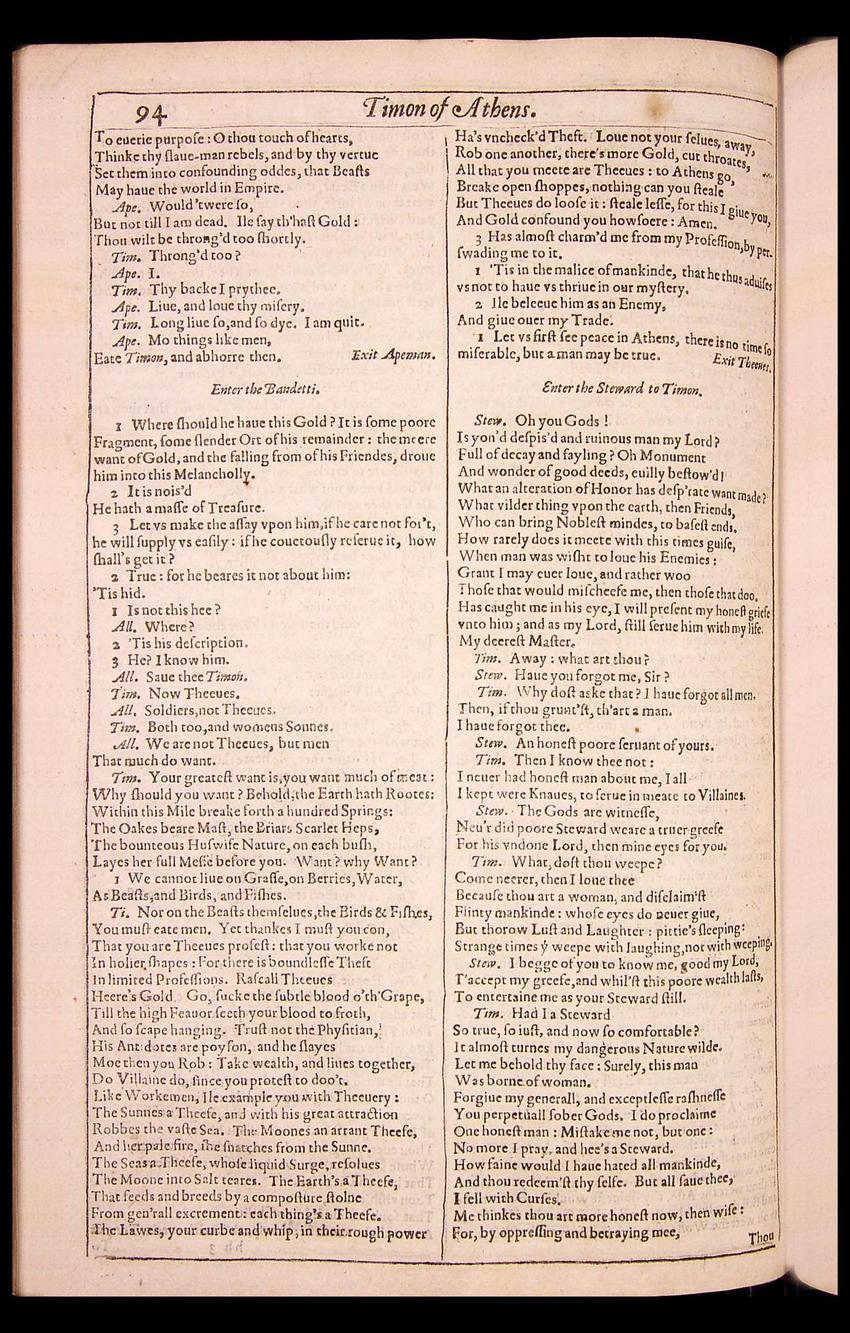 94
Timon of Athens.
To euerie purpose : O thou touch of hearts,
Thinke thy slaue-man rebels, and by thy vertue
Set them into confounding oddes, that Beasts
May haue the world in Empire.
Ape. Would 'twere so,
But not till I am dead. Ile say th'hast Gold :
Thou wilt be throng'd too shortly.
Tim. Throng'd too ?
Ape. I.
Tim. Thy backe I prythee.
Ape. Liue, and loue thy misery.
Tim. Long liue so, and so dye. I am quit.
Ape. Mo things like men,
Eate Timon, and abhorre then. Exit Apeman.
Enter the Bandetti.
1 Where should he haue this Gold ? It is some poore
Fragment, some slender Ort of his remainder : the meere
want of Gold, and the falling from of his Friendes, droue
him into this Melancholly.
2 It is nois'd
He hath a masse of Treasure.
3 Let vs make the assay vpon him, if he care not for't,
he will supply vs easily : if he couetously reserue it, how
shall's get it ?
2 True : for he beares it not about him:
'Tis hid.
1 Is not this hee ?
All. Where ?
2 'Tis his description.
3 He? I know him.
All. Saue thee Timon.
Tim. Now Theeues.
All. Soldiers, not Theeues.
Tim. Both too, and womens Sonnes.
All. We are not Theeues, but men
That much do want.
Tim. Your greatest want is, you want much of meat :
Why should you want ? Behold, the Earth hath Rootes:
Within this Mile breake forth a hundred Springs:
The Oakes beare Mast, the Briars Scarlet Heps,
The bounteous Huswife Nature, on each bush,
Layes her full Messe before you. Want ? why Want ?
1 We cannot liue on Grasse, on Berries, Water,
As Beasts, and Birds, and Fishes.
Ti. Nor on the Beasts themselues, the Birds & Fishes,
You must eate men. Yet thankes I must you con,
That you are Theeues profest : that you worke not
In holier shapes : For there is boundlesse Theft
In limited Professions. Rascall Theeues
Heere's Gold. Go, sucke the subtle blood o'th'Grape,
Till the high Feauor seeth your blood to froth,
And so scape hanging. Trust not the Physitian,
His Antidotes are poyson, and he slayes
Moe then you Rob : Take wealth, and liues together,
Do Villaine do, since you protest to doo't.
Like Workemen, Ile example you with Theeuery :
The Sunnes a Theefe, and with his great attraction
Robbes the vaste Sea. The Moones an arrant Theefe,
And her pale fire, she snatches from the Sunne.
The Seas a Theefe, whose liquid Surge, resolues
The Moone into Salt teares. The Earth's a Theefe,
That feeds and breeds by a composture stolne
From gen'rall excrement : each thing's a Theefe.
The Lawes, your curbe and whip, in their rough power
Ha's vncheck'd Theft. Loue not your selues, away,
Rob one another, there's more Gold, cut throates,
All that you meete are Theeues : to Athens go,
Breake open shoppes, nothing can you steale
But Theeues do loose it : steale lesse, for this I giue you,
And Gold confound you howsoere : Amen.
3 Has almost charm'd me from my Profession, by per-
swading me to it.
1 'Tis in the malice of mankinde, that he thus aduises
vs not to haue vs thriue in our mystery.
2 Ile beleeue him as an Enemy,
And giue ouer my Trade.
1 Let vs first see peace in Athens, there is no time so
miserable, but a man may be true. Exit Theeues.
Enter the Steward to Timon.
Stew. Oh you Gods !
Is yon'd despis'd and ruinous man my Lord ?
Full of decay and fayling ? Oh Monument
And wonder of good deeds, euilly bestow'd !
What an alteration of Honor has desp'rate want made ?
What vilder thing vpon the earth, then Friends,
Who can bring Noblest mindes, to basest ends.
How rarely does it meete with this times guise,
When man was wisht to loue his Enemies :
Grant I may euer loue, and rather woo
Those that would mischeefe me, then those that doo.
Has caught me in his eye, I will present my honest griefe
vnto him ; and as my Lord, still serue him with my life.
My deerest Master.
Tim. Away : what art thou ?
Stew. Haue you forgot me, Sir ?
Tim. Why dost aske that ? I haue forgot all men.
Then, if thou grunt'st, th'art a man.
I haue forgot thee.
Stew. An honest poore seruant of yours.
Tim. Then I know thee not :
I neuer had honest man about me, I all
I kept were Knaues, to serue in meate to Villaines.
Stew. The Gods are witnesse,
Neu'r did poore Steward weare a truer greefe
For his vndone Lord, then mine eyes for you.
Tim. What, dost thou weepe ?
Come neerer, then I loue thee
Because thou art a woman, and disclaim'st
Flinty mankinde : whose eyes do neuer giue,
But thorow Lust and Laughter : pittie's sleeping:
Strange times ẏ weepe with laughing, not with weeping.
Stew. I begge of you to know me, good my Lord,
T'accept my greefe, and whil'st this poore wealth lasts,
To entertaine me as your Steward still.
Tim. Had I a Steward
So true, so iust, and now so comfortable ?
It almost turnes my dangerous Nature wilde.
Let me behold thy face : Surely, this man
Was borne of woman.
Forgiue my generall, and exceptlesse rashnesse
You perpetuall sober Gods. I do proclaime
One honest man : Mistake me not, but one :
No more I pray, and hee's a Steward.
How faine would I haue hated all mankinde,
And thou redeem'st thy selfe. But all saue thee,
I fell with Curses.
Me thinkes thou art more honest now, then wise :
For, by oppressing and betraying mee,
Thou